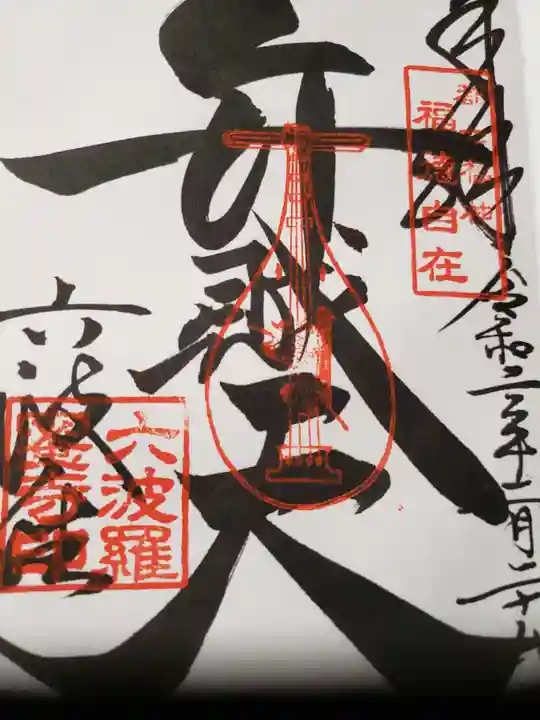 奉拝 令和二年十一月二十
都七福神
福徳自在
弁財天
六波羅
六波羅
蜜寺印